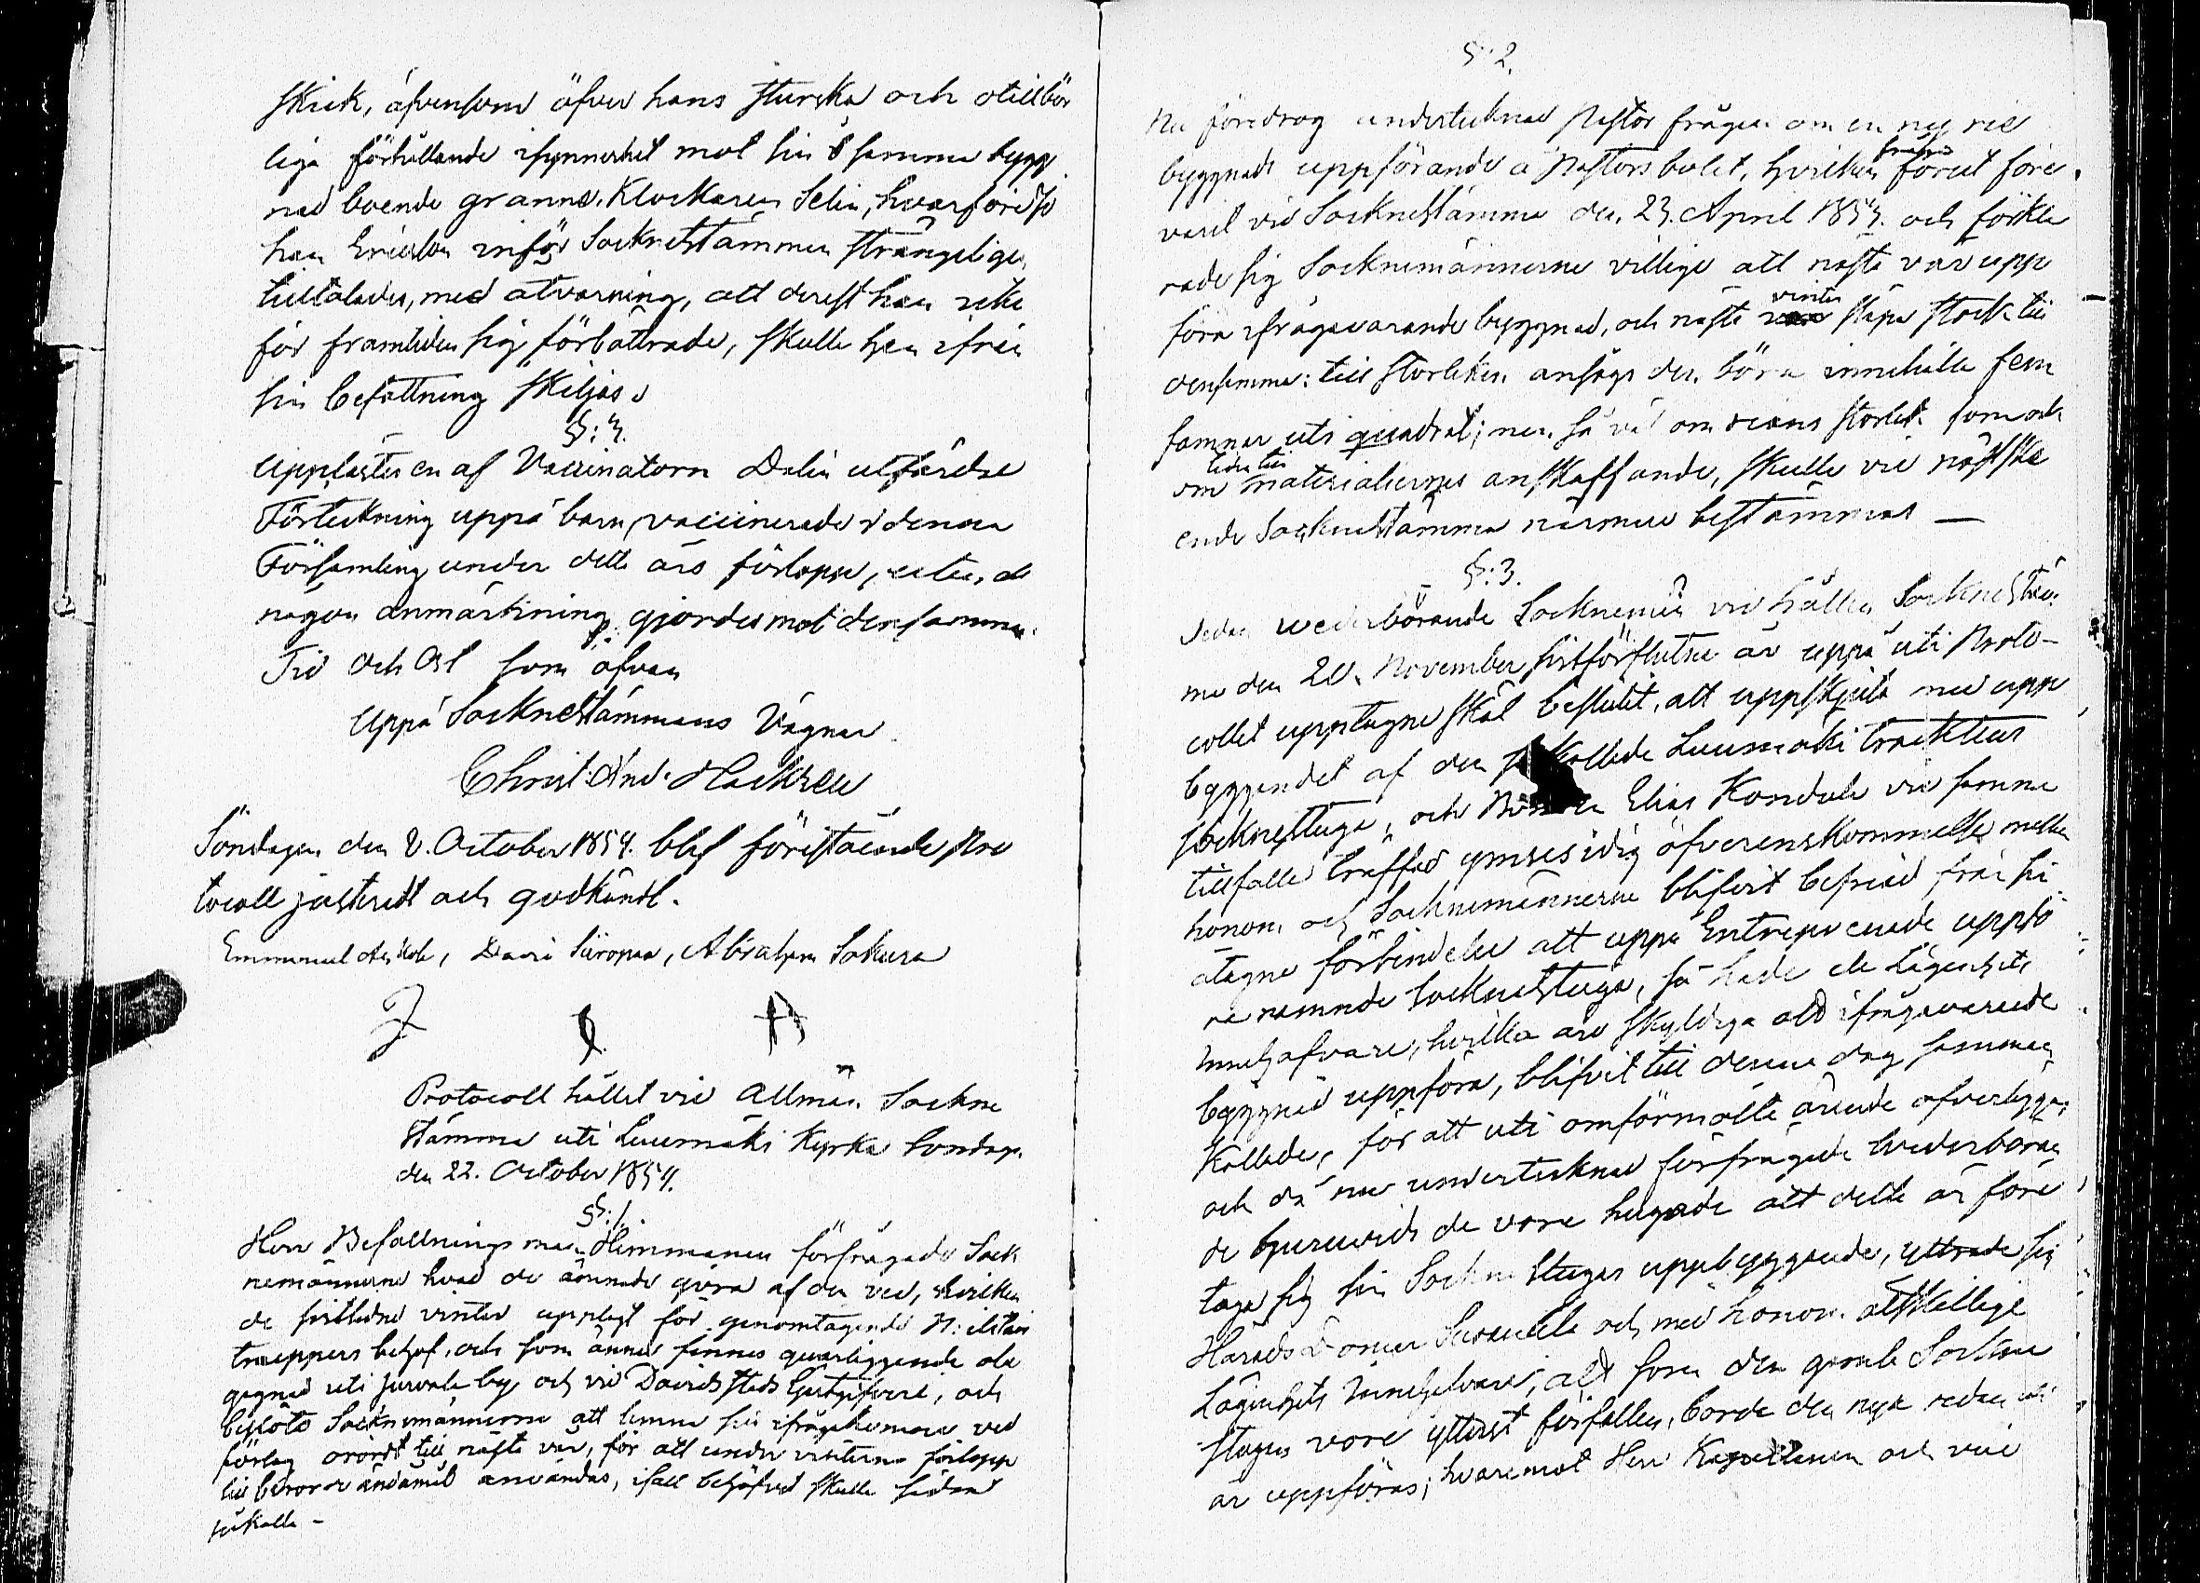 skick, äfvensom öfver hans sturska och otillbör
liga förhållande isynnerhet mot sin i samma bygg
nad boende granne, Klockaren Selin, hvarföre ock
han Ericson inför Socknestämman strängeligen
tilltalades, med åtvarning, att derest han icke
för framtiden sig förbättrade, skulle han ifrån
sin befattning skiljas.
§: 4.
Upplästes en af Vaccinatorn Dalin utfärdad
Förteckning uppå barn, vaccinerade i denna
Församling under detta års förlopp, utan, at
någon anmärkning gjordes mot densamma.
Tid och Ort som ofvan
Uppå Socknestämmans Vägnar
Christ: And: Hackzell
Söndagen den 8. October 1854. blef förestående Pro
tocoll justeradt och godkändt.
Emmanuel, David Suropaa, Abraham
Protocoll hållet vid Allmän Sockne
stämma uti Luumäki Kyrka Söndagen
den 22. October 1854.
§: 1.
Herr Befallningsman Himmanen förfrågade Sock
nemännerne hvad de ämnade göra af den ved, hvilken
de sistledne vinter upplagt för genomtågande Militair
trouppers behof, och som ännu finnes qvarliggande obe
gagnad uti Jurvala by och vid Davidstads Gästgifveri, och
beslöto Socknemännerne att lemna sin ifrågakomne ved
förlag orördt till nästa vår, för att under vinterns förlopp
till berorde ändamål användas, ifall behofvet skulle sådant
påkalla –
§ 2.
Nu föredrog undertecknad Pastor frågan om en ny rie
byggnads uppförande å Pastorsbolet, hvilken fråga förut före
varit vid Socknestämma den 23. April 1854. och förkla
rade sig Socknemännerne villige att nästa vår upp
föra ifrågavarande byggnad, och nästa vinter släpa stock till
densamma: till storleken ansågs den böra innehålla fem
famnar uti quadrat; men så väl om rians storlek som och
om tiden till materialiernes anskaffande, skulle vid nästföl
ande Socknestämma närmare bestämmas —
§: 3.
Sedan wederbörande Socknemän vid hållen Socknestäm
ma den 20. November sistförflutne år uppå uti Proto-
collet upptagne skäl beslutit, att uppskjuta med upp
byggandet af den så kallade Luumäki tracktens
Socknestuga, och Bonden Elias Kondula vid samma
tillfälle träffad ömsesidig öfverenskommelse mellan
honom och Socknemännerne blifvit befriad från sin
åtagne förbindelse att uppå Entreprenade uppfö
ra nämnde Socknestuga, så hade de Lägenhets
Innehafvare, hvilka äro skyldiga att ifrågavarande
byggnad uppföra, blifvit till denna dag samman
kallade, för att uti omförmälte ärende öfverlägga;
och då nu undertecknad förfrågade wederböran
de huruvida de vore hugade att detta år före
taga sig sin Socknestugas uppbyggande, yttrade sig
Härads Domar Suvanla och med honom åtskillige
Lägenhets Innehafvare, att som den gamla Sockne
stugan vore ytterst förfallen, borde den nya redan i
år uppföras; hvaremot Herr Kapellanen och